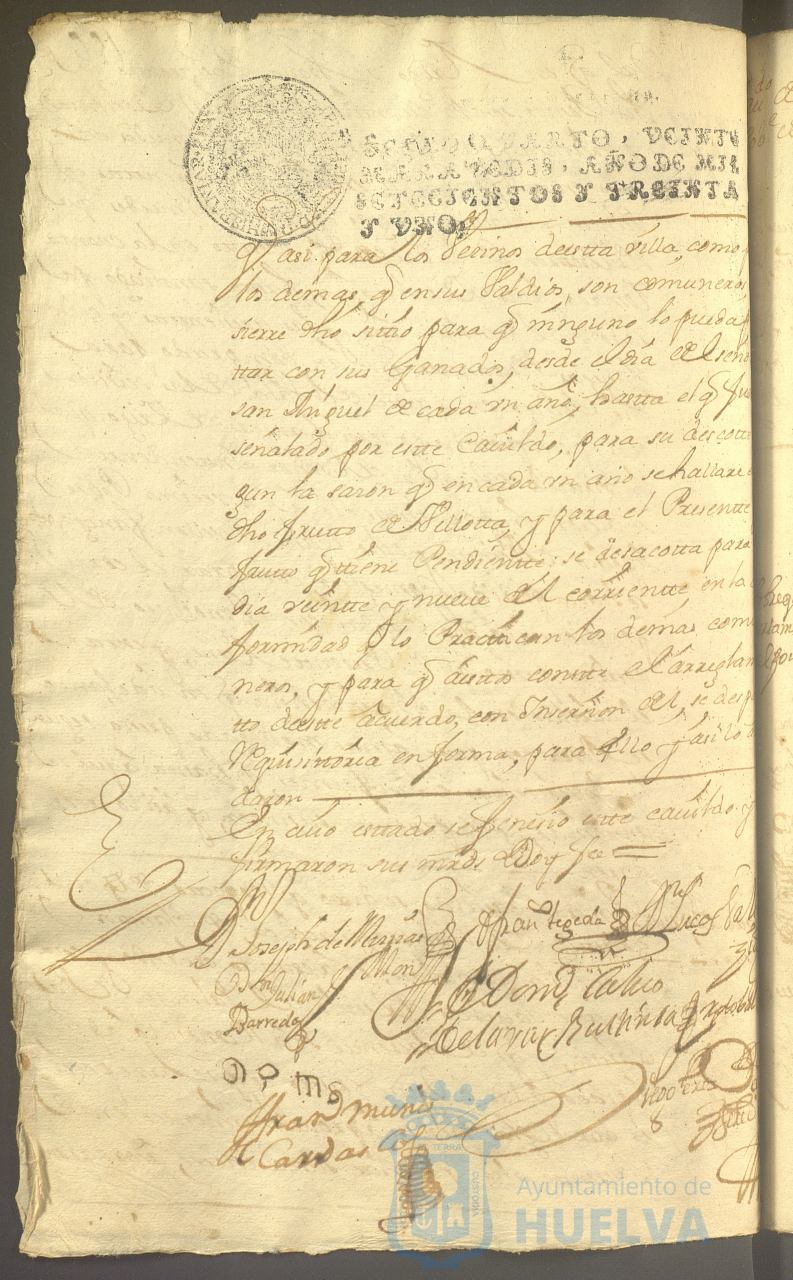 SELLO QVARTO, VEINTE
MARAVEDIS, AÑO DE MIL
SETECIENTOS Y TREINTA
Y VNO.
q asi para los Vecinos de estta villa, como
los demas, q en sus Valdios, son comuneros
sierre dho sittio para q ninguno lo pueda
ttar con sus Ganados, desde el dia de el señ
san Miguel de cada un año, hastta el q fu
señalado por estte Cavildo, para su descotte
gun la sazon q en cada un año se hallare
dho frutto de Vellotta, y para el Presentte
frutto q ttiene Pendientte se desacotta para
dia veintte y nueve del corrientte, en la
formidad q lo Practtican los demas comu
neros, y para q a esttos constte el arreglam
tto de stte acuerdo, con Inserzion del, se desp
Requisittoria en forma, para ello y asi lo a
daron
En cuio esttado se fenezio estte cavildo y
firmaron sus mrds Doy fee
D Joseph de
Fran Tegeda
Lucas
Dn Julian
Barreda
Domo Calvo
de la
Fran Muñ
Cardas
Ayuntamiento de
HUELVA